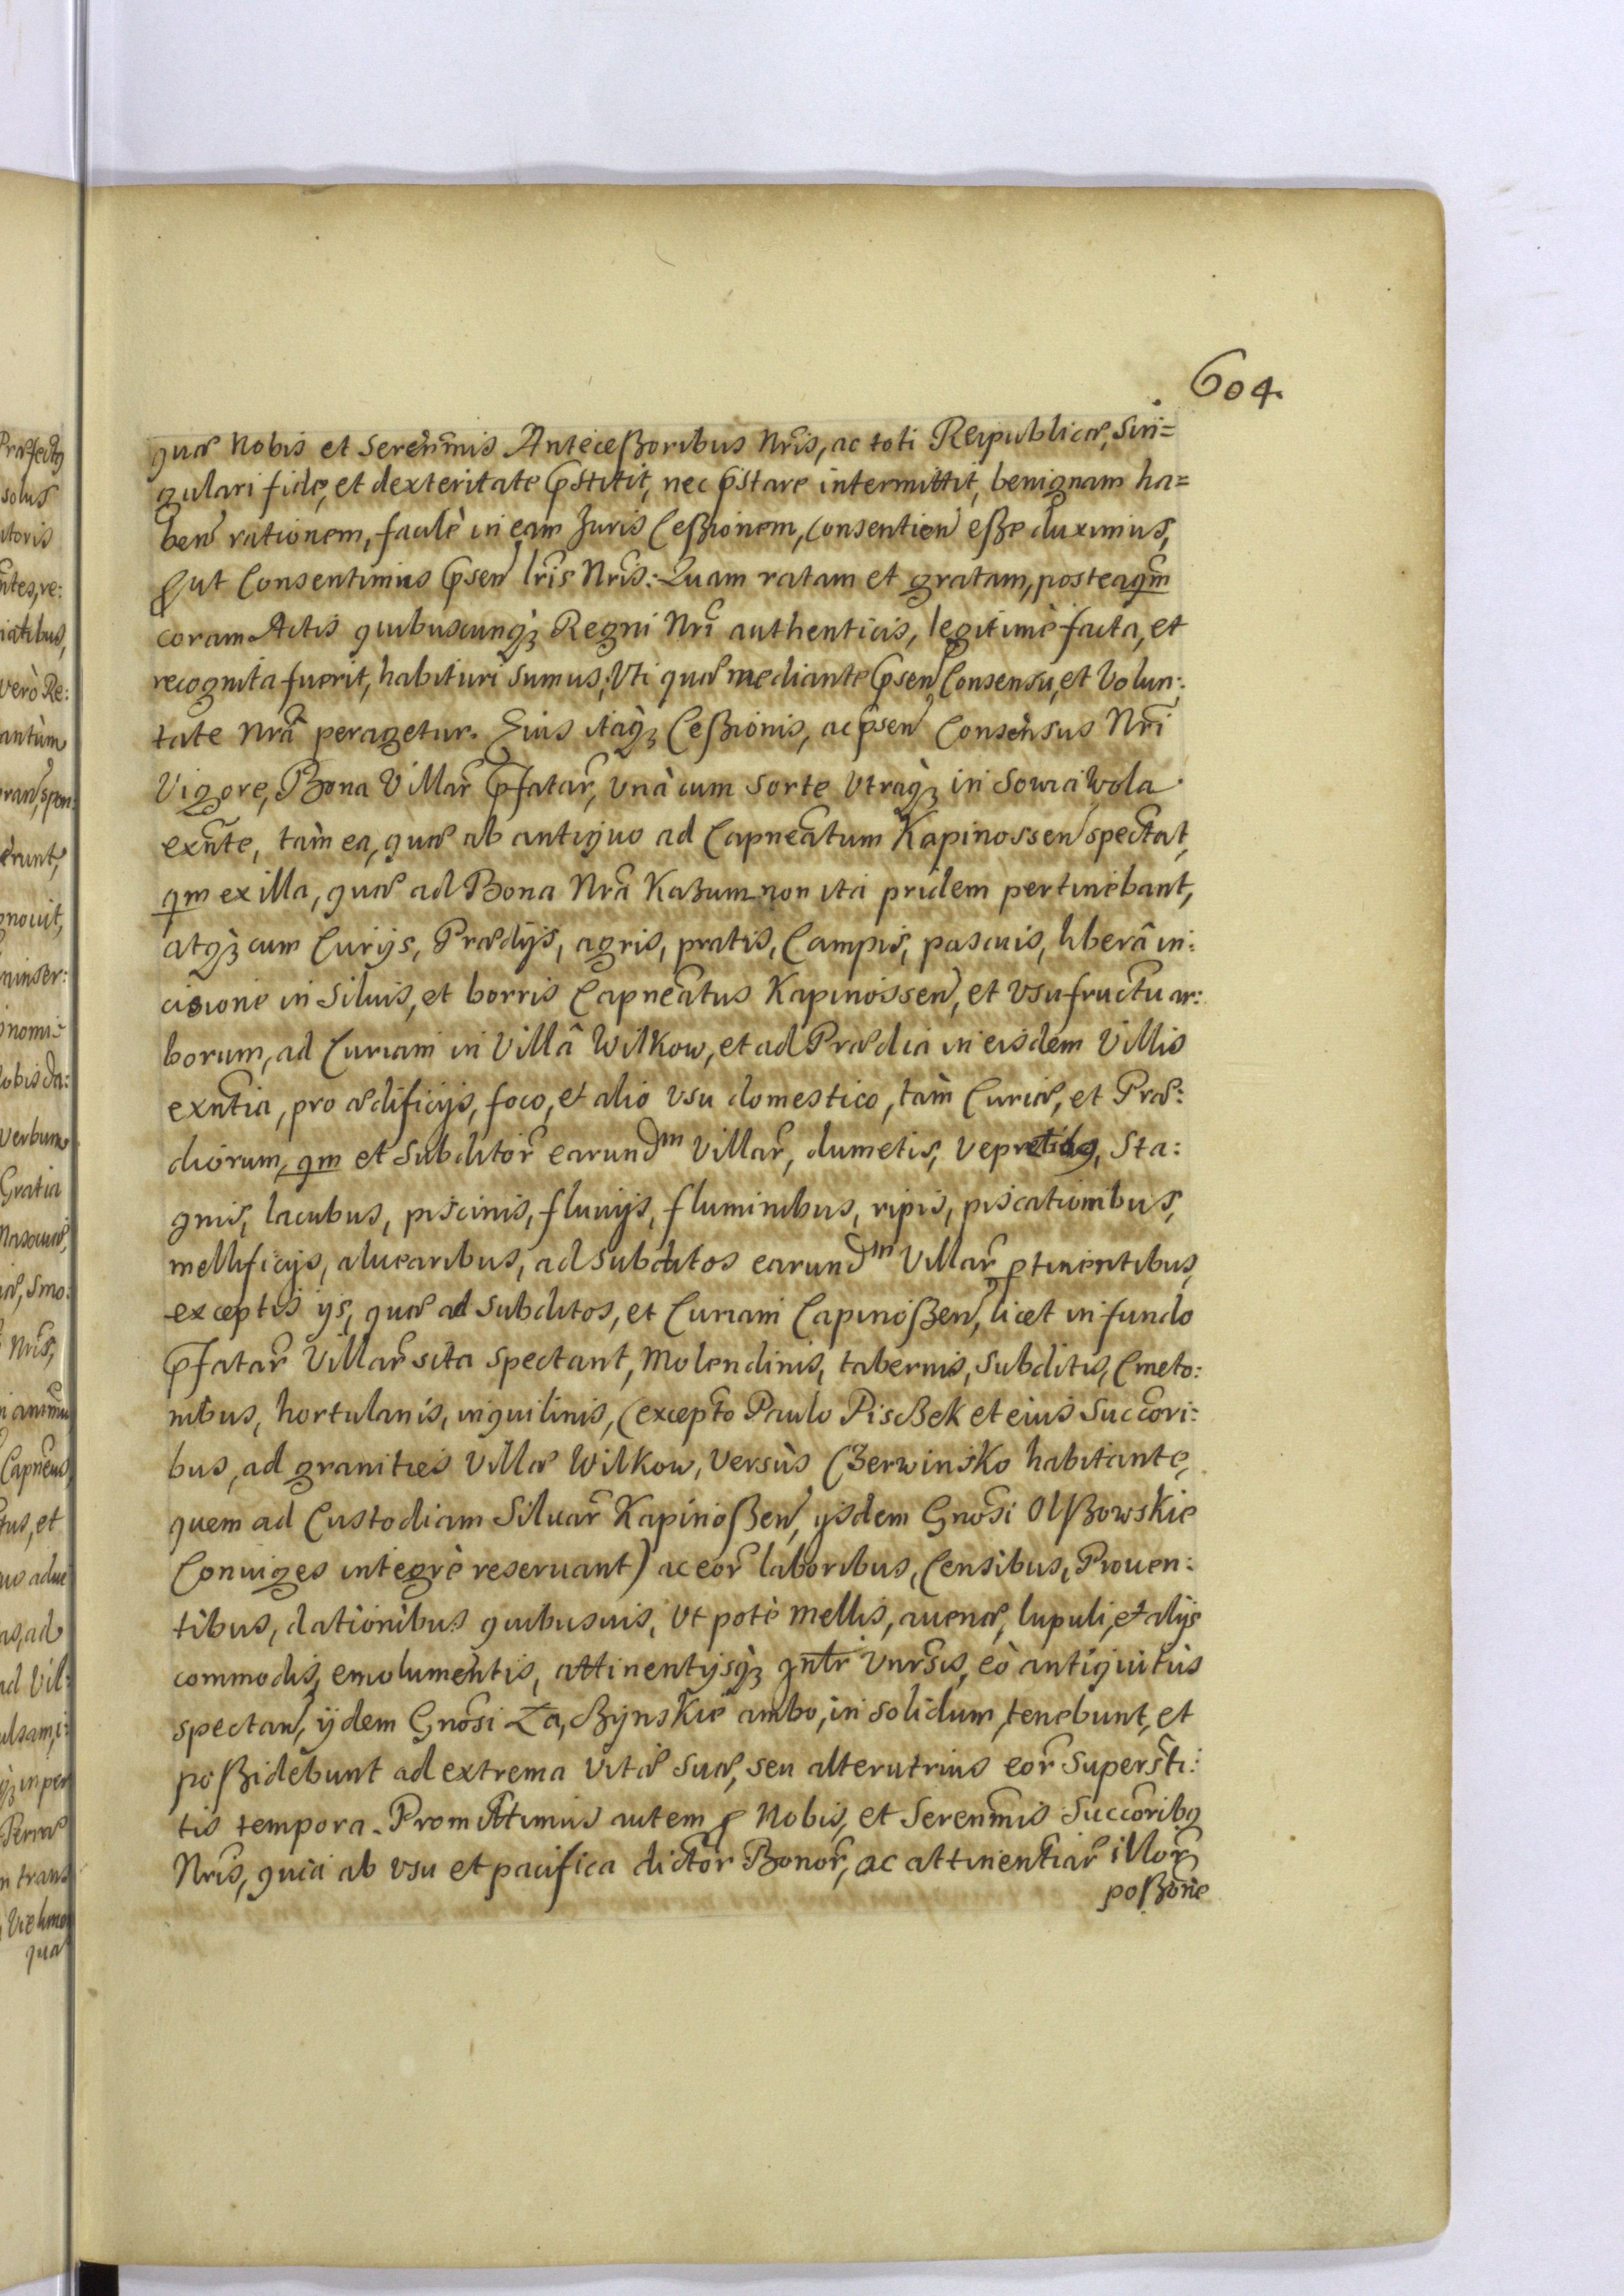 604.
quæ Nobis et Sereñmis Anteceßoribus Nr̃is, ac toti Reipublicæ, Sin=
gulari fide, et dexteritate p̃stitit, nec p̃stare intermittit, benignam ha=
beñ rationem, facilè in eam Juris Ceßionem, Consentieñ eße duximus,
Put Consentimus p̃señ lr̃is Nr̃is: Quam ratam et gratam, posteaqm̃
coram Actis quibuscunqꝫ Regni Nr̃i authenticis, legitimè facta, et
recognita fuerit, habituri sumus, Vti quæ mediante p̃señ Consensu, et Volun:
tate Nr̃â peragetur. Eius itaqꝫ Ceßionis, ac p̃señ Consensus Nr̃i
Vigore, Bona Villar̃ p̃fatar̃, Vnà cum Sorte Vtraqꝫ in Sowia Wola
exñte, tàm ea, quæ ab antiquo ad Capneãtum Kapinosseñ spectat,
qm̃ ex illa, quæ ad Bona Nr̃a Kazum non ita pridem pertinebant,
atqꝫ cum Curijs, Prædijs, agris, pratis, Campis, pascuis, liberâ in:
cisione in Siluis, et borris Capneãtus Kapinosseñ, et Vsufructu ar:
borum, ad Curiam in Villâ Wilkow, et ad Prædia in eisdem Villis
exñtia, pro ædificijs, foco, et alio Vsu domestico, tàm Curiæ, et Præ:
diorum, qm̃ et Subditor̃ earundm̃ Villar̃, dumetis, Vepretibꝫ, Sta:
gnis, lacubus, piscinis, fluuijs, fluminibus, ripis, piscationibus,
mellificijs, aluearibus, ad Subditos earundm̃ Villar̃ ptinentibus,
exceptis ijs, quæ ad Subditos, et Curiam Capinoßeñ, licet in fundo
p̃fatar̃ Villar̃ sita spectant, Molendinis, tabernis, Subditis, Cmeto:
nibus, hortulanis, inquilinis, (excepto Paulo Pisczek et eius Succõri:
bus, ad granities Villæ Wilkow, Versùs Czerwinsko habitante,
quem ad Custodiam Siluar̃ Kapinoßeñ, ijsdem Gnõsi Olßowskie
Coniuges integrè reseruant) ac eor̃ laboribus, Censibus, Prouen:
tibus, dationibus quibusuis, Vt potè Mellis, auenæ, lupuli, et alijs
commodis, emolumentis, attinentijsqꝫ gñtr Vnr̃sis, eò antiquitùs
spectañ, ijdem Gnõsi Zażynskie ambo, in solidum, tenebunt, et
poßidebunt ad extrema Vitæ suæ, seu alterutrius eor̃ Supersti:
tis tempora. Promittimus autem p Nobis, et Sereñmis Succõribꝫ
Nr̃is, quia ab Vsu et pacifica dictor̃ Bonor̃, ac attinentiar̃ illor̃
poßõne